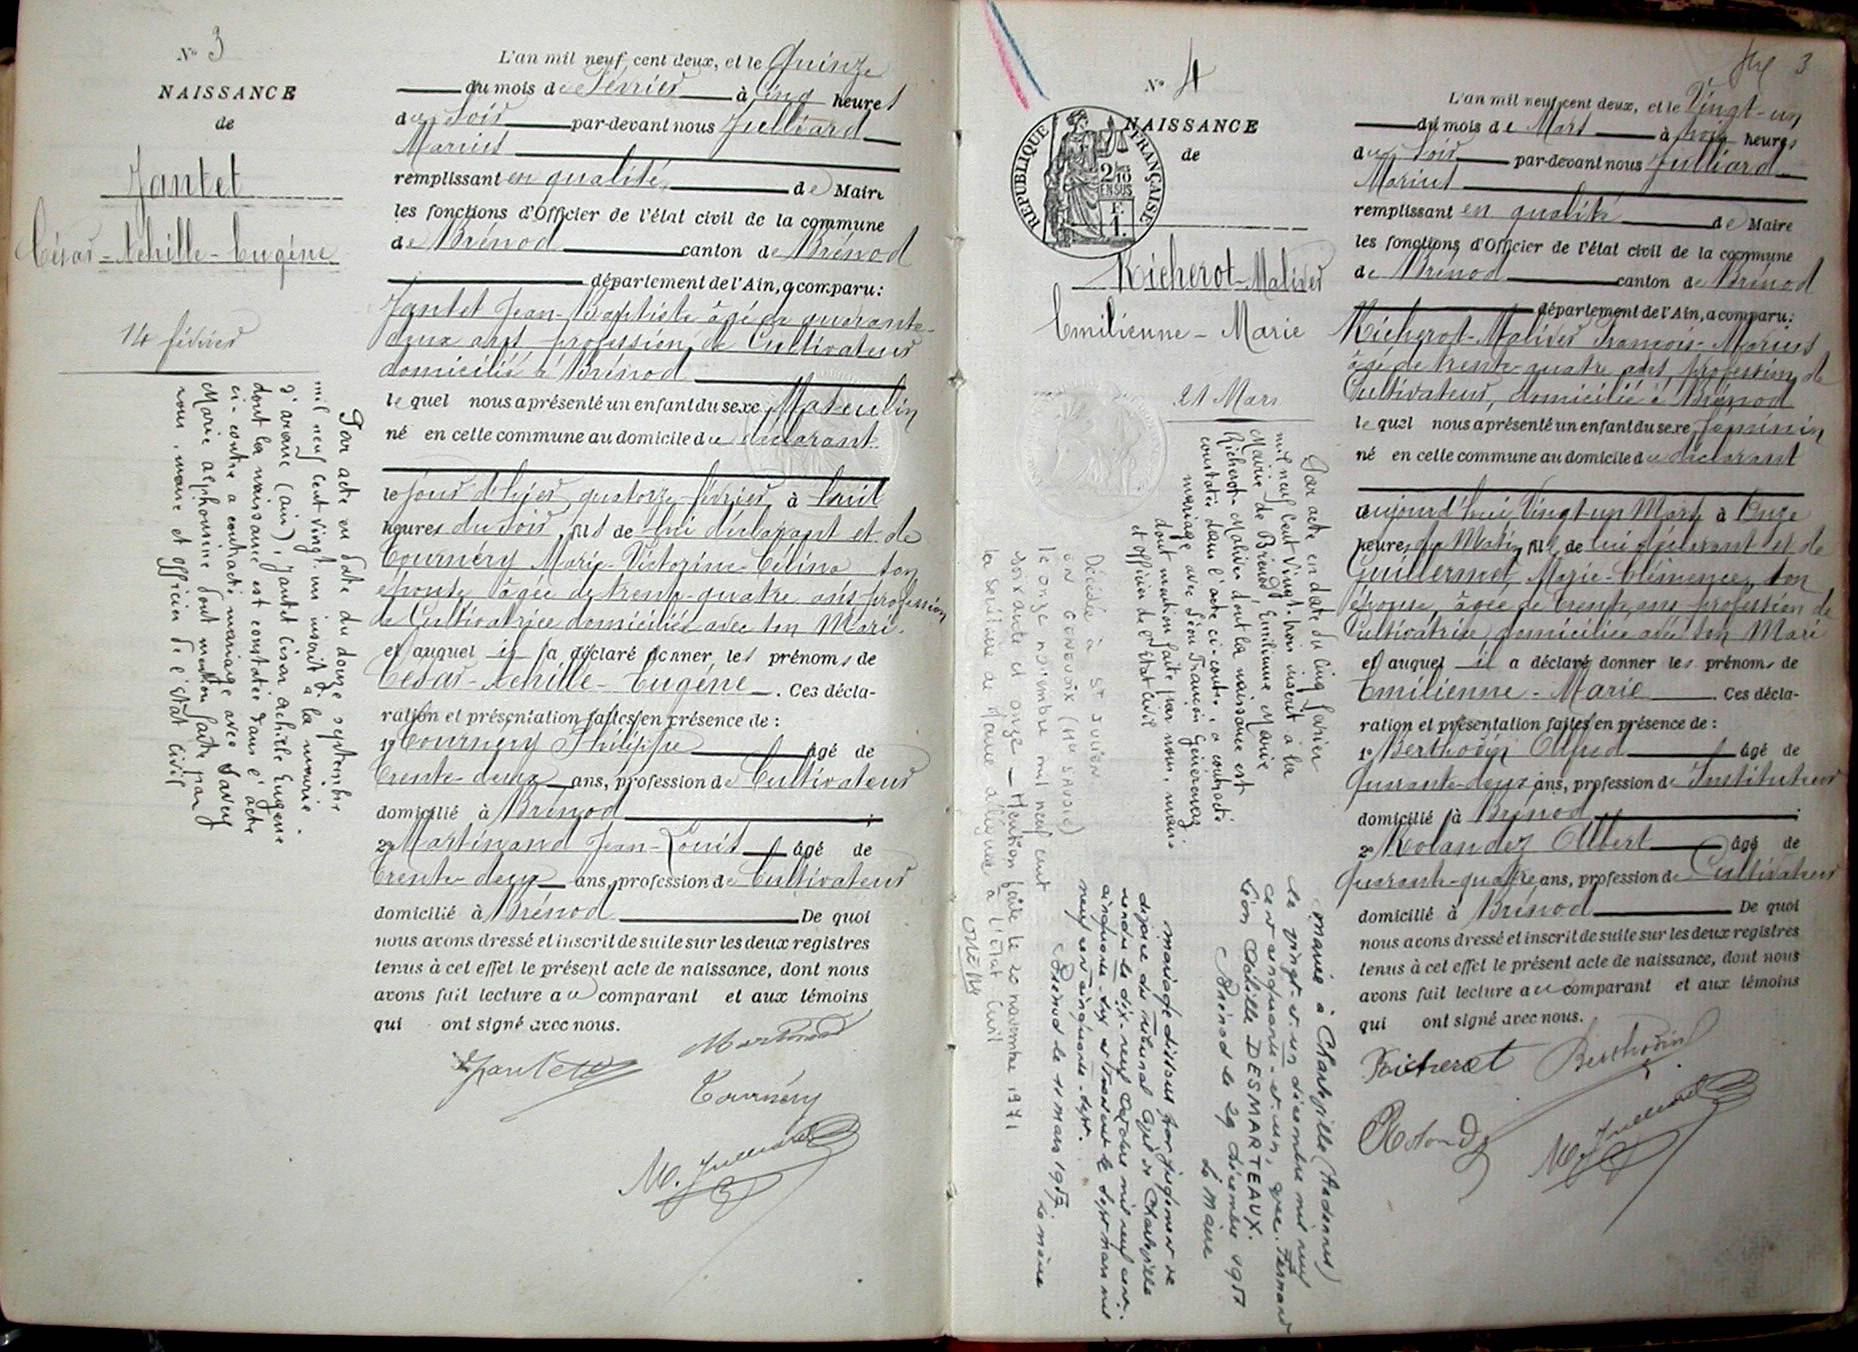 N° 3
NAISSANCE
de
Jantet
César-Achille-Eugène
14 février
Par acte en date du douze septembre
mil neuf cent vingt un inscrit à la mairie
d'aranc (ain), Jantet César achille Eugène
dont la naissance est constatée dans l'acte
ci-contre a contracté mariage avec Savey
Marie alphonsine dont mention faite par
nous, maire et officier de l'état civil
L'an mil neuf cent deux, et le Quinze
du mois de Février à Cinq heures
du Soir par-devant nous Julliard
Marius
remplissant en qualité de Maire
les fonctions d'Officier de l'état civil de la commune
de Brénod canton de Brénod
département de l'Ain, a comparu:
Jantet Jean-Baptiste âgé de quarante-
deux ans profession de Cultivateur
domicilié à Brénod
lequel nous a présenté un enfant du sexe Masculin
né en cette commune au domicile du déclarant
le jour d'hier quatorze février à huit
heures du Soir, fils de lui déclarant et de
Tournéry Marie-Victorine-Célina son
épouse âgée de trente-quatre ans profession
de Cultivatrice domiciliée avec son Mari.
et auquel il a déclaré donner les prénoms de
César-Achille-Eugène. Ces décla-
ration et présentation faites en présence de:
1° Tournéry Philippe âgé de
trente-deux ans, profession de Cultivateur
domicilié à Brénod;
2° Martinand Jean-Louis âgé de
trente-deux ans, profession de Cultivateur
domicilié à Brénod De quoi
nous avons dressé et inscrit de suite sur les deux registres
tenus à cet effet le présent acte de naissance, dont nous
avons fait lecture au comparant et aux témoins
qui ont signé avec nous.
Jantet Martinand
Tournéry
M. Julliard
3
N° 4
NAISSANCE
de
RÉPUBLIQUE FRANÇAISE
2/10 EN SUS
F. 1.
Richerot-Maliver
Emilienne-Marie
21 Mars
Par acte en date du cinq février
mil neuf cent vingt-trois inscrit à la
Mairie de Brénod, Emilienne Marie
Richerot-Maliver dont la naissance est
constatée dans l'acte ci-contre a contracté
mariage avec Léon François
dont mention faite par nous, maire
et officier de l'état civil
Décédée à St JULIEN
en GENEVOIX (Hte SAVOIE)
le onze novembre mil neuf cent
soixante et onze - Mention faite le 20 novembre 1971
la secrétaire de Mairie déléguée à l'Etat Civil
mariée à Charleville (Ardennes)
le vingt-et-un décembre mil neuf
cent cinquante-et-un, avec Fernand
Léon Achille DESMARTEAUX.
Brénod le 29 décembre 1951
Le Maire
mariage dissous par jugement de
divorce du Tribunal Civil de Charleville
rendu le dix-neuf octobre mil neuf cent
cinquante-six et transcrit le sept mars mil
neuf cent cinquante-sept.
Brénod le 11 mars 1957
Le maire
L'an mil neuf cent deux, et le Vingt-un
du mois de Mars à trois heures
du Soir par-devant nous Julliard
Marius
remplissant en qualité de Maire
les fonctions d'Officier de l'état civil de la commune
de Brénod canton de Brénod
département de l'Ain, a comparu:
Richerot-Maliver François-Marius
âgé de trente-quatre ans, profession de
Cultivateur, domicilié à Brénod
lequel nous a présenté un enfant du sexe féminin
né en cette commune au domicile du déclarant
aujourd'hui Vingt un Mars à Onze
heures du Matin, fils de lui déclarant et de
Guillermet Marie-Clémence, son
épouse, âgée de trente ans profession de
Cultivatrice, domiciliée avec son Mari
et auquel il a déclaré donner les prénoms de
Emilienne-Marie. Ces décla-
ration et présentation faites en présence de:
1° Berthodin Alfred âgé de
quarante-deux ans, profession de Instituteur
domicilié à Brénod;
2° Rolandez Albert âgé de
quarante-quatre ans, profession de Cultivateur
domicilié à Brénod De quoi
nous avons dressé et inscrit de suite sur les deux registres
tenus à cet effet le présent acte de naissance, dont nous
avons fait lecture au comparant et aux témoins
qui ont signé avec nous.
Richerot Berthodin
M. Julliard